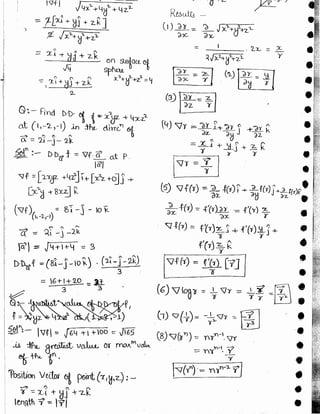 |∇f| √4x²+4y²+4z²
= 2[xî + yĵ + zk̂]
2 √x²+y²+z²
= xî + yĵ + zk̂ on surface of
√4 sphere
= xî + yĵ + zk̂ x²+y²+z²=4
2
Q:- Find DD of f = x²yz + 4xz²
at (1,-2,-1) in the direcⁿ of
a⃗ = 2î - ĵ - 2k̂
Solⁿ:- DD of f = ∇f · a⃗ at P.
|a⃗|
∇f = [2xyz + 4z²]î + [x²z + 0]ĵ +
[x²y + 8xz]k̂
(∇f)(1,-2,-1) = 8î - ĵ - 10k̂
a⃗ = 2î - ĵ - 2k̂
|a⃗| = √4+1+4 = 3
DD of f = (8î - ĵ - 10k̂) · (2î - ĵ - 2k̂)
3
= 16+1+20 = 37
3 3
Solⁿ:- |∇f| = √64+1+100 = √165
is the greatest value or maxᵐ value
of the fⁿ.
Position Vector of point (x,y,z) :-
r⃗ = xî + yĵ + zk̂
length r = |r⃗|
Results -
(1) ∂r/∂x = ∂/∂x √x²+y²+z²
= 1/2√x²+y²+z² · 2x = x/r
∂r/∂x = x/r (2) ∂r/∂y = y/r
(3) ∂r/∂z = z/r
(4) ∇r = ∂r/∂x î + ∂r/∂y ĵ + ∂r/∂z k̂
= x/r î + y/r ĵ + z/r k̂
∇r = r⃗/r
(5) ∇f(r) = ∂/∂x f(r)î + ∂/∂y f(r)ĵ + ∂/∂z f(r)k̂
∂/∂x f(r) = f'(r) ∂r/∂x = f'(r) x/r
∇f(r) = f'(r) x/r î + f'(r) y/r ĵ +
f'(r) z/r k̂
∇f(r) = f'(r)/r [r⃗]
(6) ∇log r = 1/r ∇r = 1/r r⃗/r = r⃗/r²
(7) ∇(1/r) = -1/r² ∇r = -r⃗/r³
(8) ∇(rⁿ) = n rⁿ⁻¹ ∇r
= n rⁿ⁻¹ · r⃗/r
∇(rⁿ) = n rⁿ⁻² r⃗